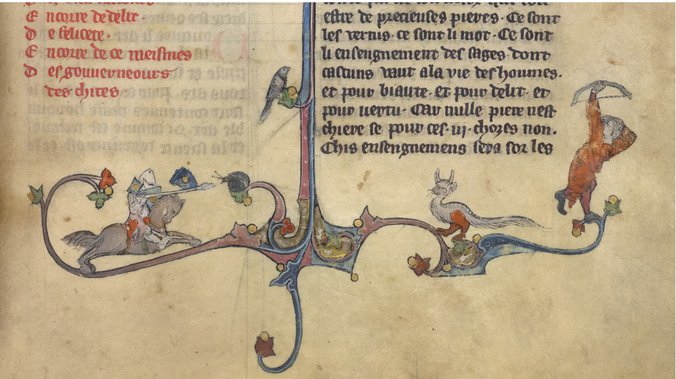 E ncore de delit.
D e felicete.
E ncore de ce meismes
D es gouverneours
des chites
estre de precieuses pieres. Ce sont
les vertus. ce sont li mot. Ce sont
li enseignement des sages dont
cascuns vaut a la vie des hommes.
et pour biaute. et pour delit. et
pour vertu. Car nulle piere nest
chiere se pour ces .iij. choses non.
Chis ensengnemens sera sor les